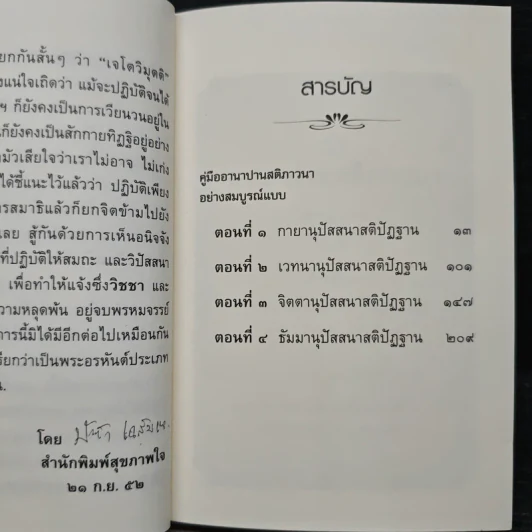 ยกกันสั้นๆ ว่า “เจโตวิมุตติ”
งแน่ใจเถิดว่า แม้จะปฏิบัติจนได้
ฯ ก็ยังคงเป็นการเวียนวนอยู่ใน
ก็ยังคงเป็นสักกายทิฏฐิอยู่อย่าง
มัวเสียใจว่าเราไม่อาจ ไม่เก่ง
ได้ชี้แนะไว้แล้วว่า ปฏิบัติเพียง
รสมาธิแล้วก็ยกจิตข้ามไปยัง
เลย สู้กันด้วยการเห็นอนิจจัง
ที่ปฏิบัติให้สมถะ และวิปัสสนา
เพื่อทำให้แจ้งซึ่งวิชชา และ
วามหลุดพ้น อยู่จบพรหมจรรย์
การนี้มิได้มีอีกต่อไปเหมือนกัน
รียกว่าเป็นพระอรหันต์ประเภท
น.
โดย
สำนักพิมพ์สุขภาพใจ
๒๑ ก.ย. ๕๒
สารบัญ
คู่มืออานาปานสติภาวนา
อย่างสมบูรณ์แบบ
ตอนที่ ๑ กายานุปัสสนาสติปัฏฐาน ๑๓
ตอนที่ ๒ เวทนานุปัสสนาสติปัฏฐาน ๑๐๑
ตอนที่ ๓ จิตตานุปัสสนาสติปัฏฐาน ๑๔๗
ตอนที่ ๔ ธัมมานุปัสสนาสติปัฏฐาน ๒๐๙